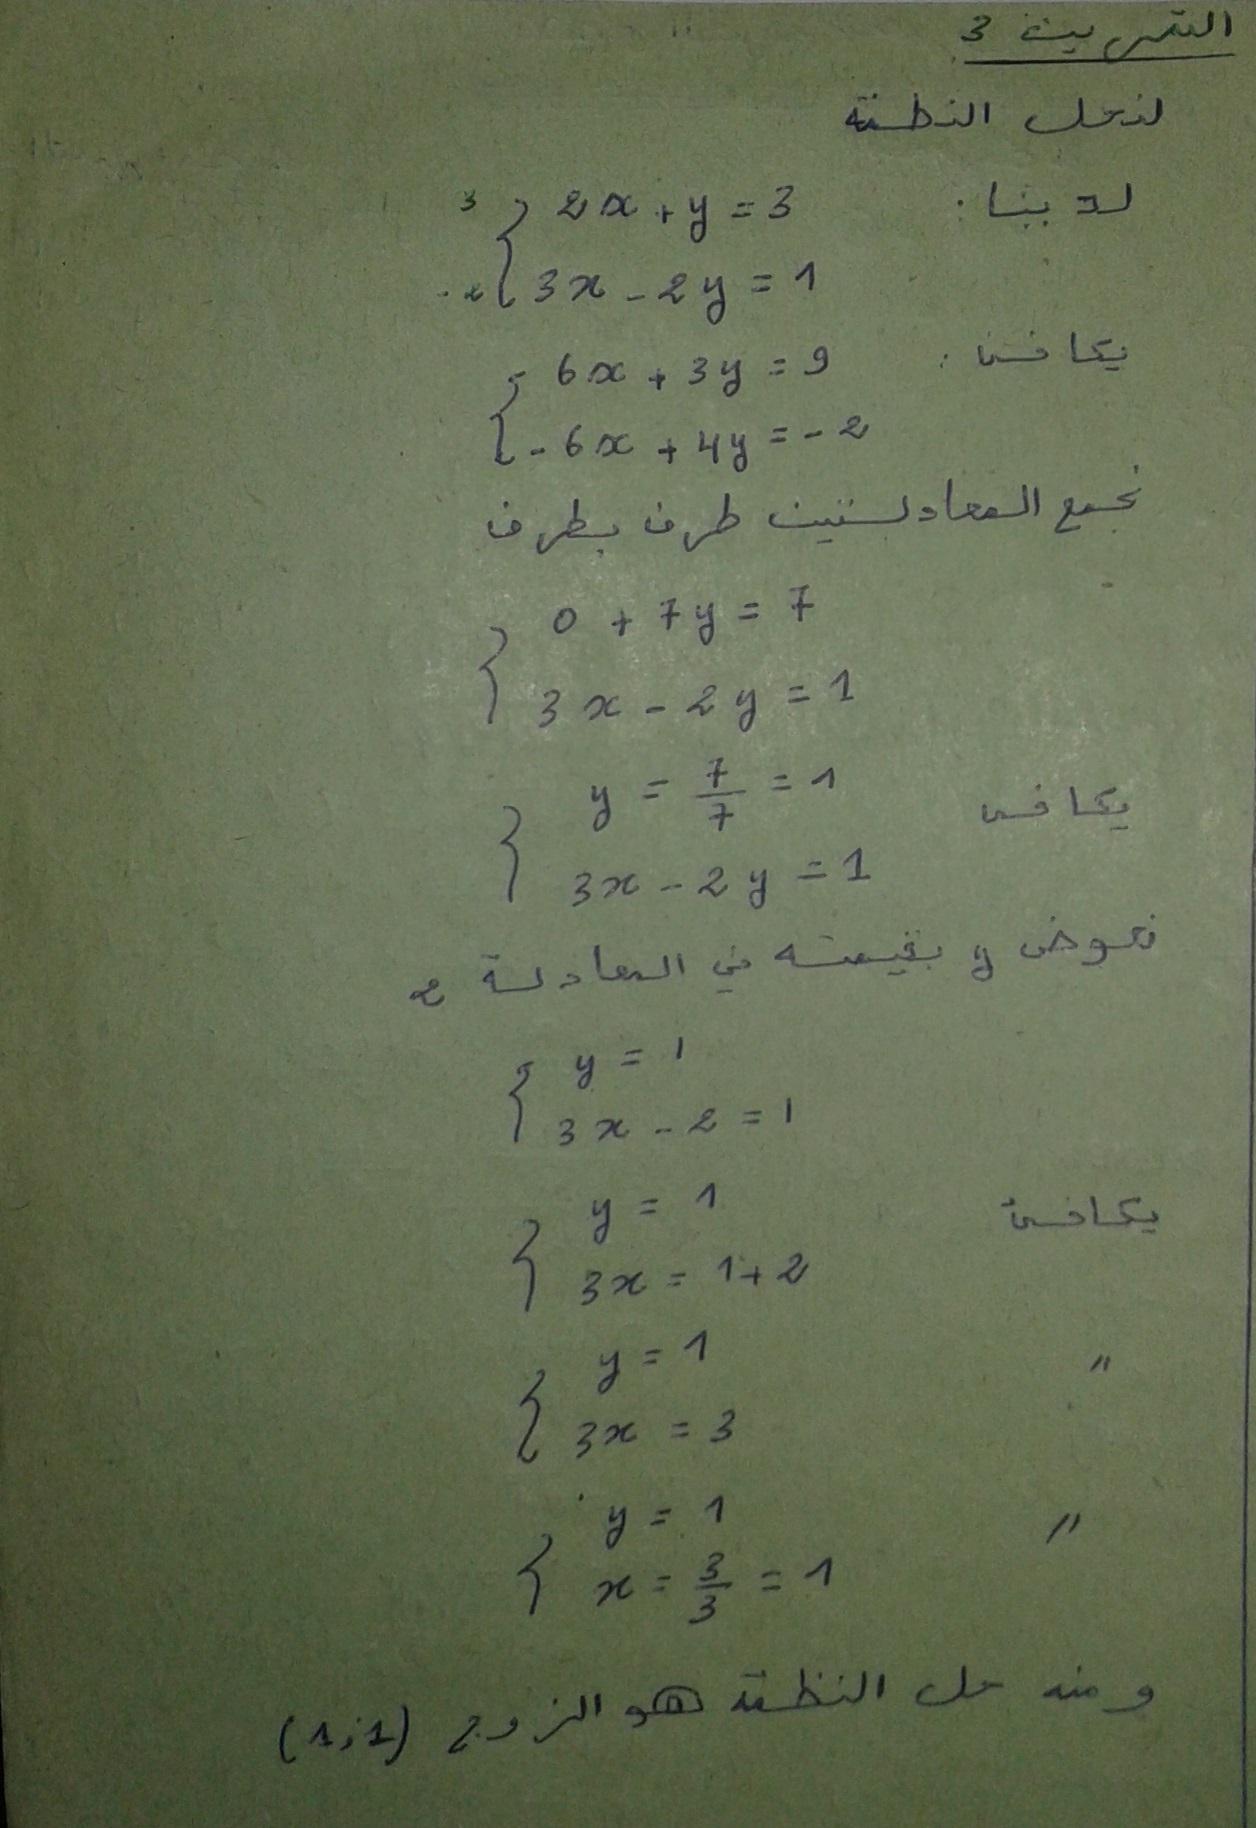 التمرين 3
لنحل النظمة
لدينا :
3 { 2x + y = 3
-2 { 3x - 2y = 1
يكافئ :
{ 6x + 3y = 9
{ -6x + 4y = -2
نجمع المعادلتين طرف بطرف
{ 0 + 7y = 7
{ 3x - 2y = 1
يكافئ
{ y = 7/7 = 1
{ 3x - 2y = 1
نعوض y بقيمته في المعادلة 2
{ y = 1
{ 3x - 2 = 1
يكافئ
{ y = 1
{ 3x = 1 + 2
"
{ y = 1
{ 3x = 3
"
{ y = 1
{ x = 3/3 = 1
ومنه حل النظمة هو الزوج (1;1)